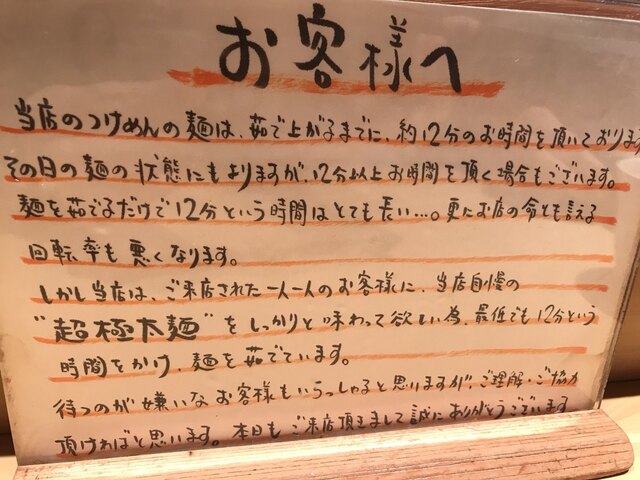 お客様へ
当店のつけめんの麺は、茹で上がるまでに、約12分のお時間を頂いております
その日の麺の状態にもよりますが、12分以上お時間を頂く場合もございます。
麺を茹でるだけで12分という時間はとても長い…。更にお店の命とも言える
回転率も悪くなります。
しかし当店は、ご来店された一人一人のお客様に、当店自慢の
"超極太麺"をしっかりと味わって欲しい為、最低でも12分という
時間をかけ、麺を茹でています。
待つのが嫌いなお客様もいらっしゃると思いますが、ご理解・ご協力
頂ければと思います。本日もご来店頂きまして誠にありがとうございます